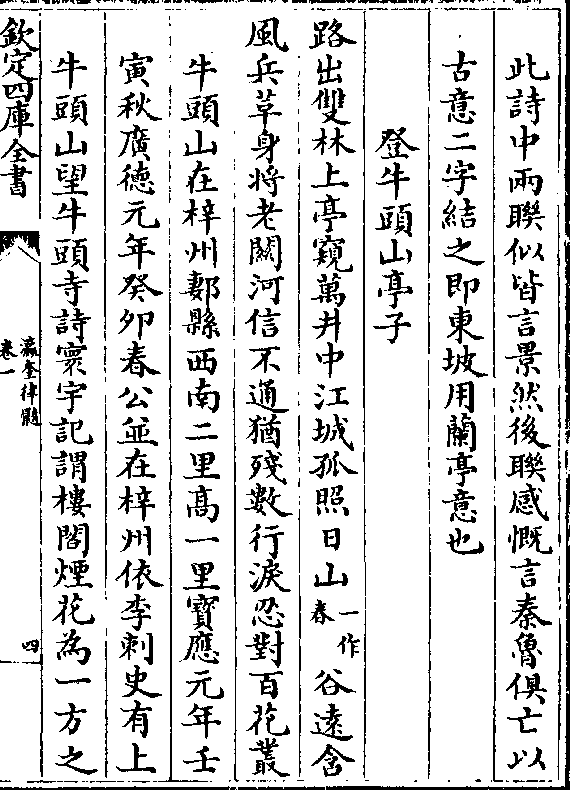 此詩中兩聯似皆言景然後聯感慨言秦魯俱亡以
古意二字結之即東坡用蘭亭意也
登牛頭山亭子
路出雙林上亭窺萬井中江城孤照日山一作春谷遠含
風兵革身將老關河信不通猶殘數行淚忍對百花叢
牛頭山在梓州郪縣西南二里高一里寶應元年壬
寅秋廣德元年癸卯春公並在梓州依李刺史有上
牛頭山望牛頭寺詩寰宇記謂樓閣煙花為一方之
欽定四庫全書
瀛奎律髓
卷一
四